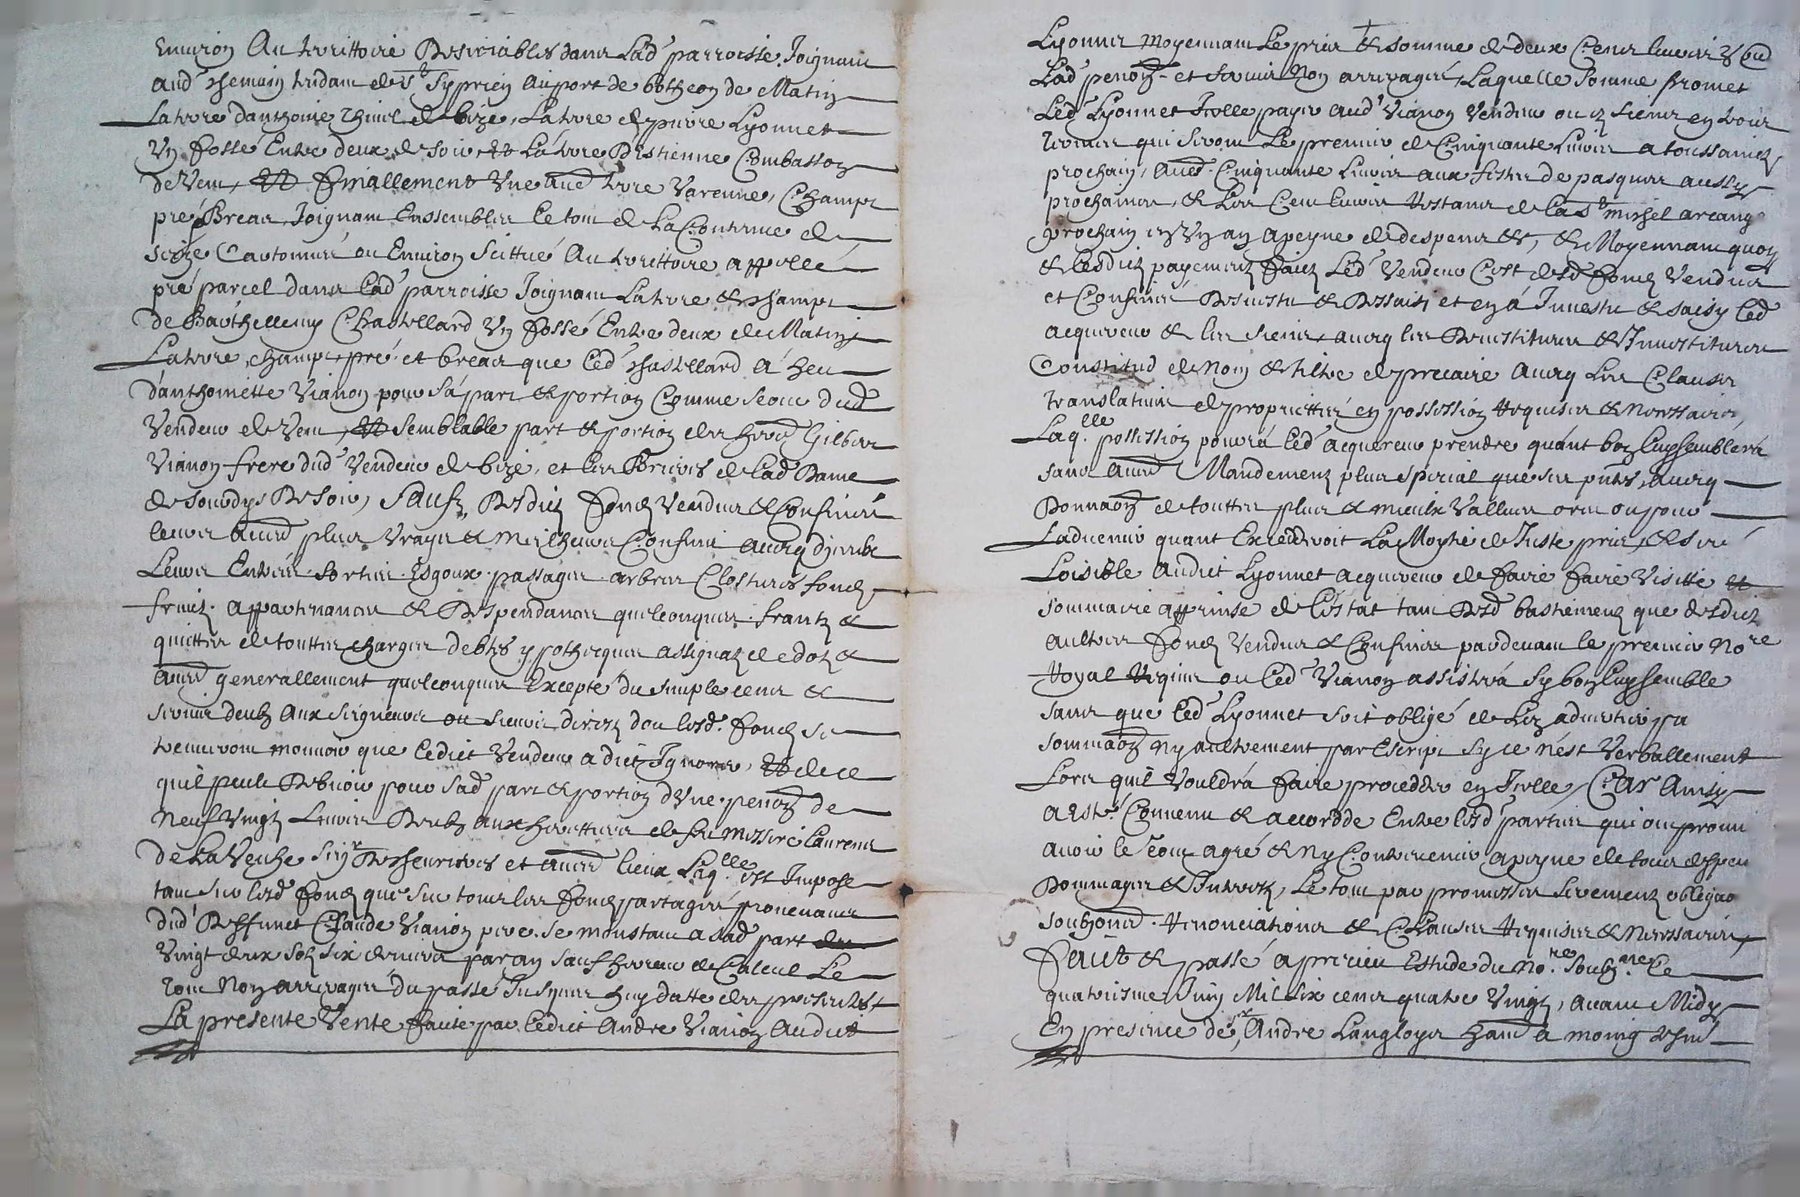 Environ Au territtoire Desiriables dans Lad' parroisse Joignant
aud' chemin tridant de St Sypriey au port de botheon de Matin
La terre danthoine de bize, La terre de pierre Lyonnet
Un fosse Entre deux de soir et La terre Destienne Combasson
de Vent, Et finallement Une aue terre Varenne, Champt
pré Breat Joignant Enssembles Le tout de La Contenue de
seize Cartonnée ou Environ Scittué Au territtoire appellé
pré parcel dans Lad' parroisse Joignant La terre & champt
de Barthellemy Chastellard Un fossé Entre deux de Matin
La terre, champt, pré et breat que Led' Chastellard á heu
danthoinette Vianoy pour sa part & portion Comme sœur dud'
Vendeur de Vent, Et semblable part & portion des hers Gilbert
Vianoy frere dud' Vendeur de bize, et Les de Lad' Dame
de Sourdys De soir, Sauf, Desdictz fondz Vendus & Confinés
leurs aues plus Vrays & meilheurs Confins avecq
Leurs Entrées Sorties Esgoux passages arbres Clostures fondz
fruictz appartenances & Despendances quelconques frantz &
quittes de touttes charges debtes ypothecques assignatz de dotz &
aues generallement quelconques Excepté du simple cens &
servis deubz Aux Seigneurs ou Sieurs directz dou lesd. fondz se
treuveront mouvoir que Ledict Vendeur a dict Ignorer, Et de ce
quil peult Debvoir pour Sad' part & portion dUne pension de
Neuf Vingtz Livres Deubz aux herettiers de feu Messire Laurent
De La Veuhe Seigr et aues lieux Laqlle est Imposé
tant sur lesd' fondz que sur tous les fondz partagés provenants
dud' Deffunct Claude Vianoy pere. Se monstant a Sad' part
Vingt deux solz six deniers par an sauf herreur de Calcul Le
tout Non arreragés du passé Jusques huy datte des presentes
La presente Vente faicte par Ledict Andre Vianoy Audict
Lyonnet Moyennant Le prix & somme de deux Cens livres
Lad' pension et servis Non arreragés, Laquelle Somme promet
Led' Lyonnet Icelle payer aud' Vianoy Vendeur ou es siens en trois
termes qui seront Le premier de Cinquante Livres a toussainctz
prochain, Aues Cinquante Livres aux festes de pasques aussy
prochaines, & Les Cent livres Restants de La St Mishel arcange
prochain en Un an apeyne de despens &c, & Moyennant quoy
& lesdictz payementz faictz Led' Vendeur C'est desd' fondz Vendus
et Confinés Desvestu & Dessaisi et en á Investu & saisy Led'
acquereur & les siens, avecq les Devestitures & Investitures
Constitud de Nom & tiltre de precaire Avecq Les Clauses
translatives de proprietté en possession Requises & Necessaires
Laqlle possession pourrá Led' acquereur prendre quant bon Luy semblerá
sans aues Mandementz plus Special que ses pntes, avecq
Donnaõn de touttes plus & mieulx Vallues ores ou pour
Ladvenir quant Excedderoit La Moytié de Juste prix, & seré
Loisible Audict Lyonnet Acquereur de faire faire Visitte et
sommaire apprinse de Lestat tant Desd' bastimentz que desdictz
aultres fondz Vendus & Confinés pardevant le premier Nore
Royal Requis ou Led' Vianoy assisterá sy bon Luy semble
sans que Led' Lyonnet soit obligé de Les advertir pa
sommaõn Ny aultrement par Escript Sy ce n'est Verballement
Lors quil Vouldrá faire procedder en Icelle, Car Ainsy
a Esté Convenu & accordde Entre lesd' parties qui ont promi
avoir le tout agré & Ny Contrevenir apeyne de tous despen
Dommages & Interestz, Le tout par promesses serementz obligaõ
soubzõns Renonciations & Clauses Requises & Necessaires
Faict & passé a Estude du Nore Soubzné Le
quatriesme Juin Mil Six cens quatre Vingtz, avant Midy
En presence de sr Andre Langloys a moing